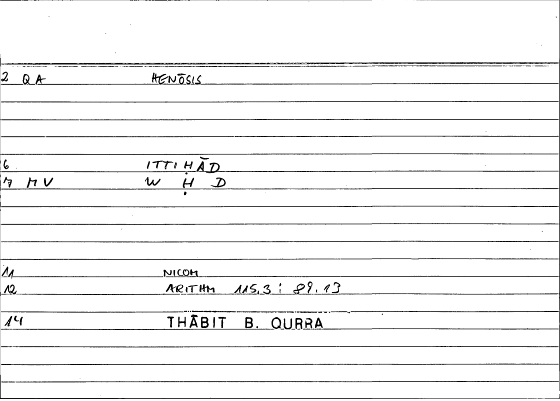 2 QA HENŌSIS
6 ITTIḤĀD
7 MV W Ḥ D
11 NICOM
12 ARITHM 115,3 : 89.13
14 THĀBIT B. QURRA